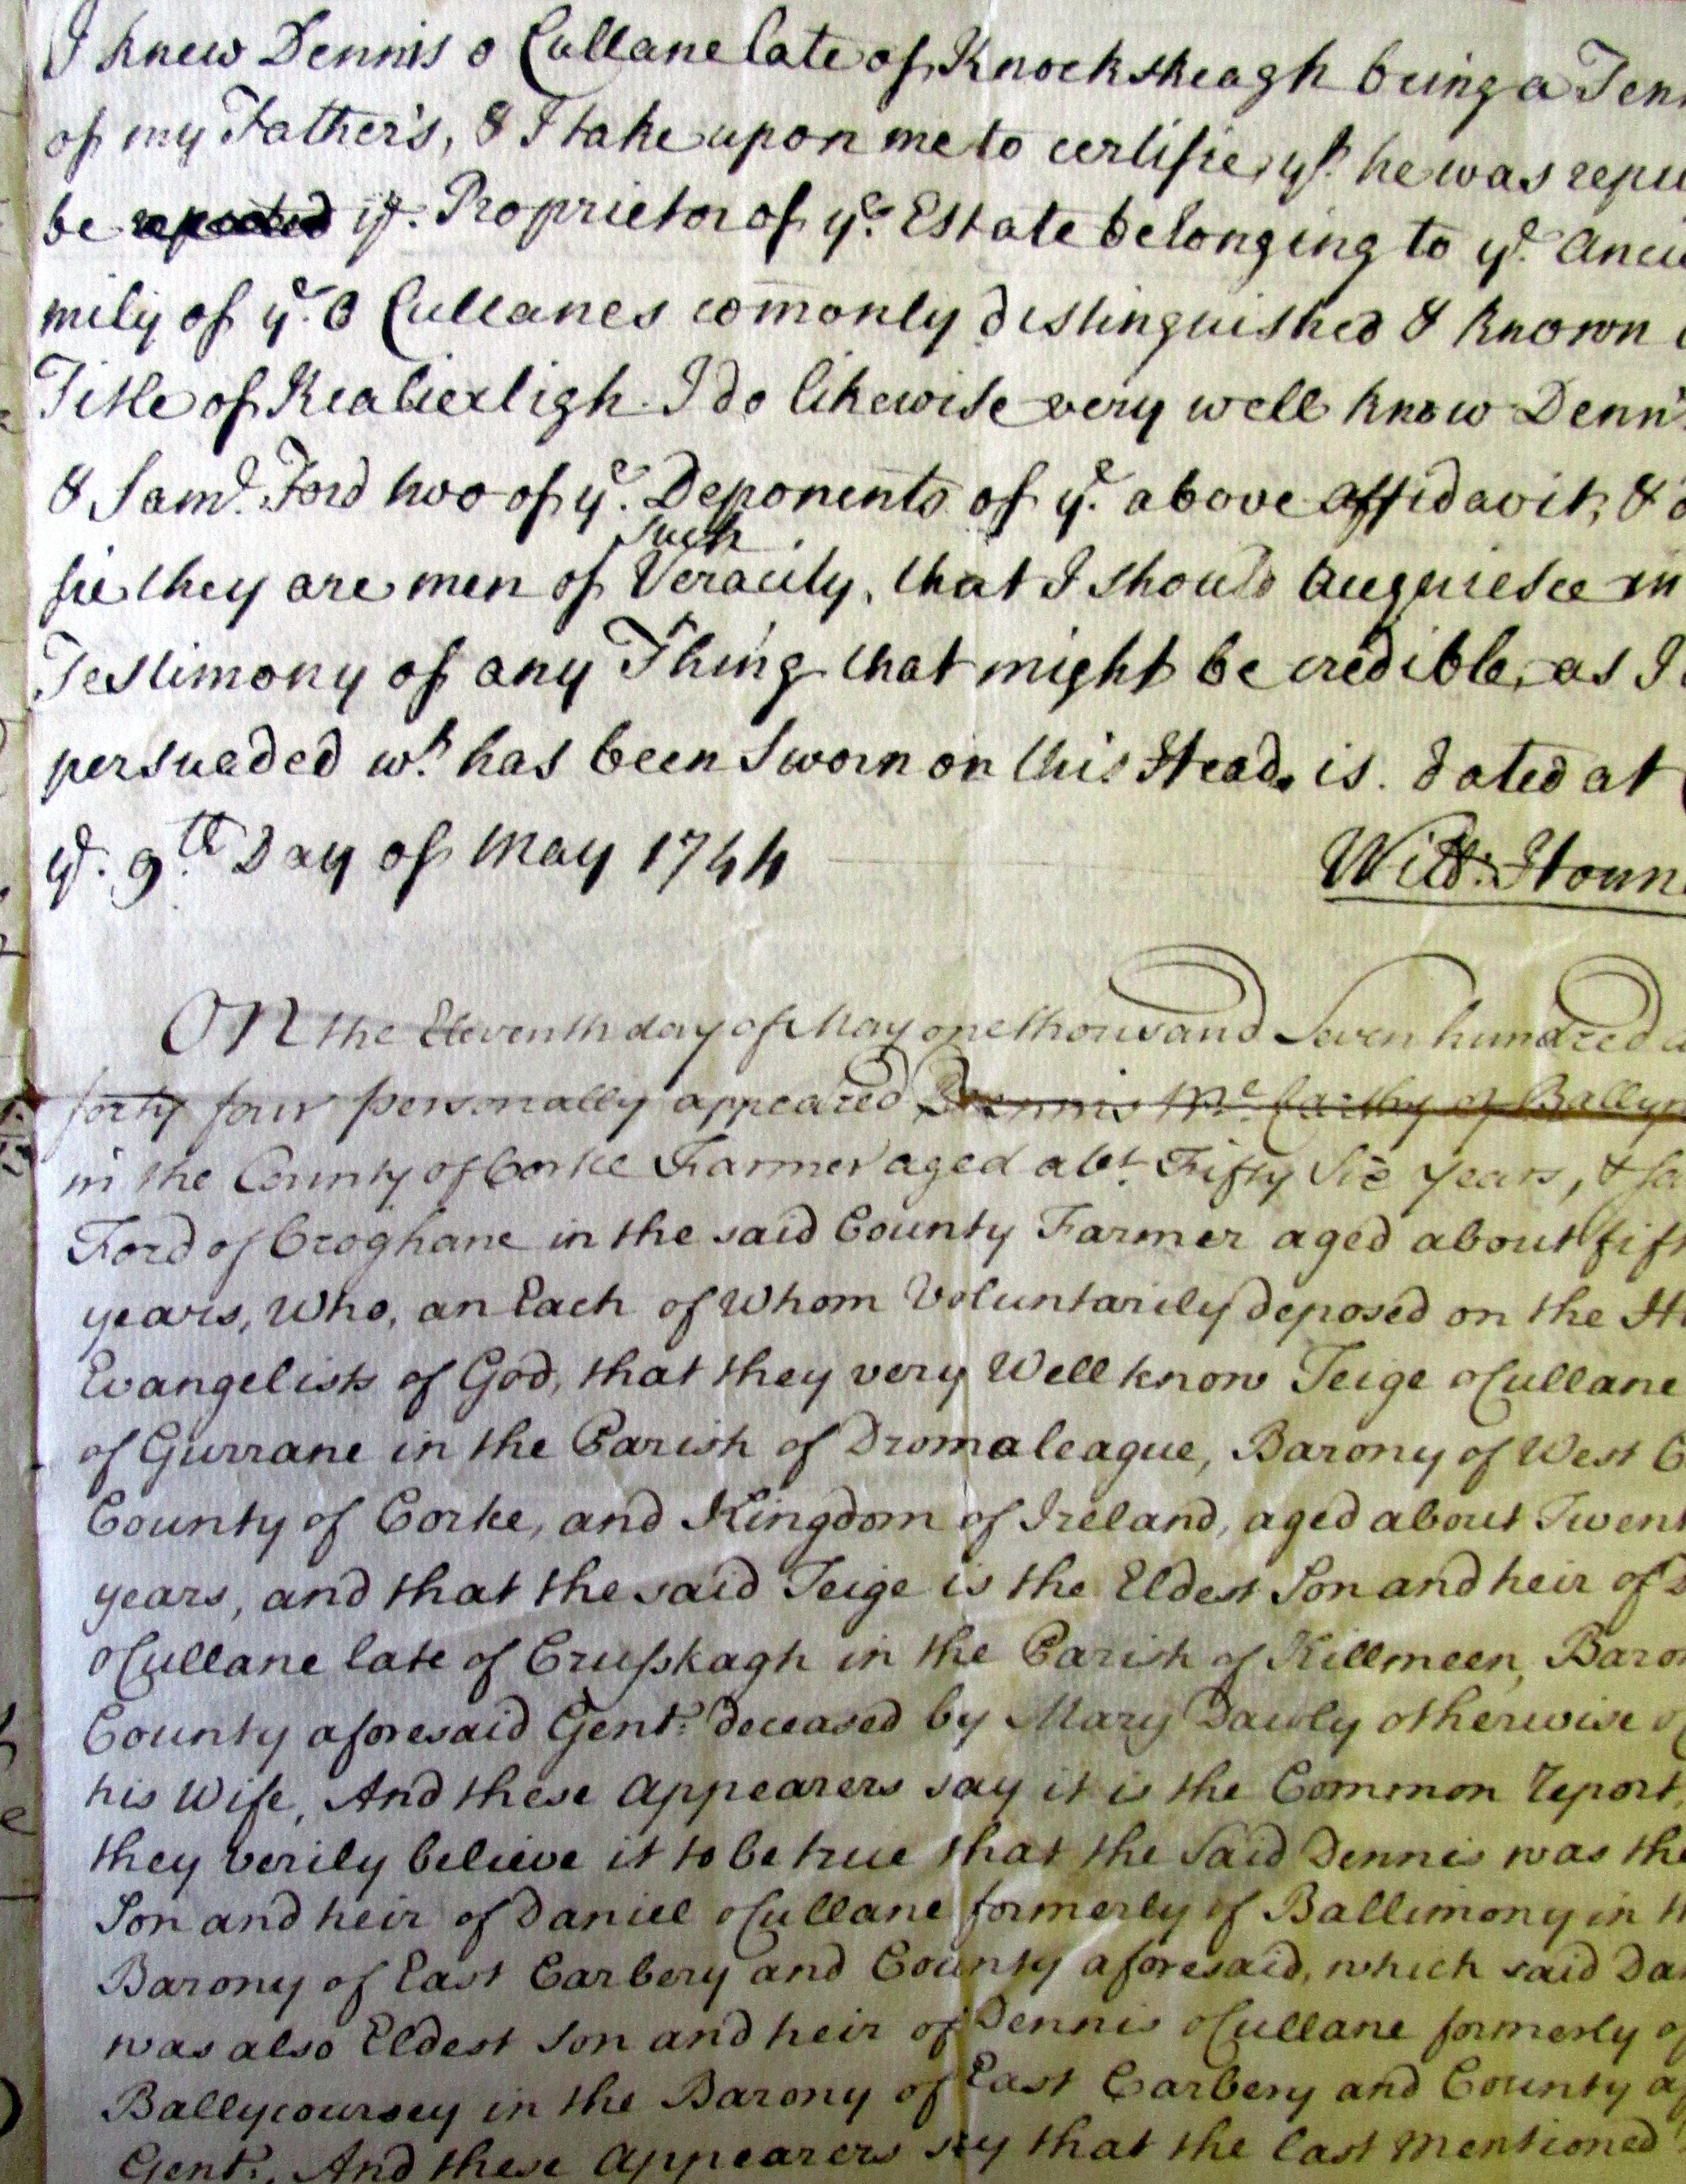 I knew Dennis o Cullane late of Knockskeagh being a Ten
of my Father's, & I take upon me to certifie yt. he was repu
be reputed ye. Proprietor of ye. Estate belonging to ye. Anci
mily of ye. O Cullanes comonly distinguished & known
Title of . I do likewise very well know Denn
& Saml. Ford two of ye. Deponents of ye. above affidavit, & d
such
fie they are men of Veracity, that I should acquiesce in
Testimony of any Thing that might be credible, as I
persuaded wt. has been Sworn on this Head, is. dated at
ye. 9th. Day of May 1744
Will: Houn
On the Eleventh day of May one thousand Seven hundred a
forty four personally appeared Dennis Mc Carthy of Ballyn
in the County of Corke Farmer aged abt. Fifty Six years, & Sa
Ford of Croghane in the said County Farmer aged about fift
years, Who, an Each of Whom Voluntarily deposed on the H
Evangelists of God, that they very Well know Teige oCullane
of Gurrane in the Parish of Dromaleague, Barony of West C
County of Corke, and Kingdom of Ireland, aged about Twent
years, and that the said Teige is the Eldest Son and heir of D
oCullane late of Crusskagh in the Parish of Killmeen, Baron
County aforesaid Gent: deceased by Mary Dawly otherwise o
his Wife, And these Appearers say it is the Common report,
they verily believe it to be true that the Said Dennis was the
Son and heir of Daniel oCullane formerly of Ballimony in th
Barony of East Carbery and County aforesaid, which said Dan
was also Eldest Son and heir of Dennis oCullane formerly of
Ballycoursey in the Barony of East Carbery and County af
Gent:, And these Appearers say that the last Mentioned